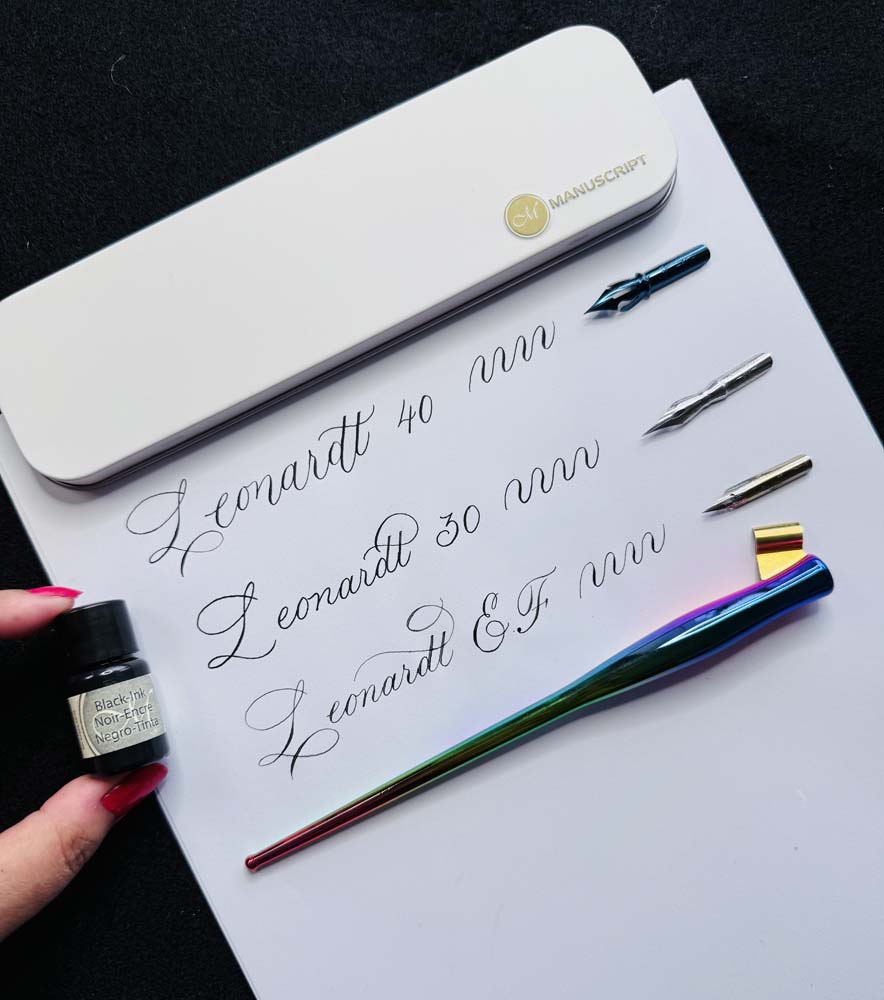 MANUSCRIPT
Leonardt 40
Leonardt 30
Leonardt EF
Black-Ink
Noir-Encre
Negro-Tinta